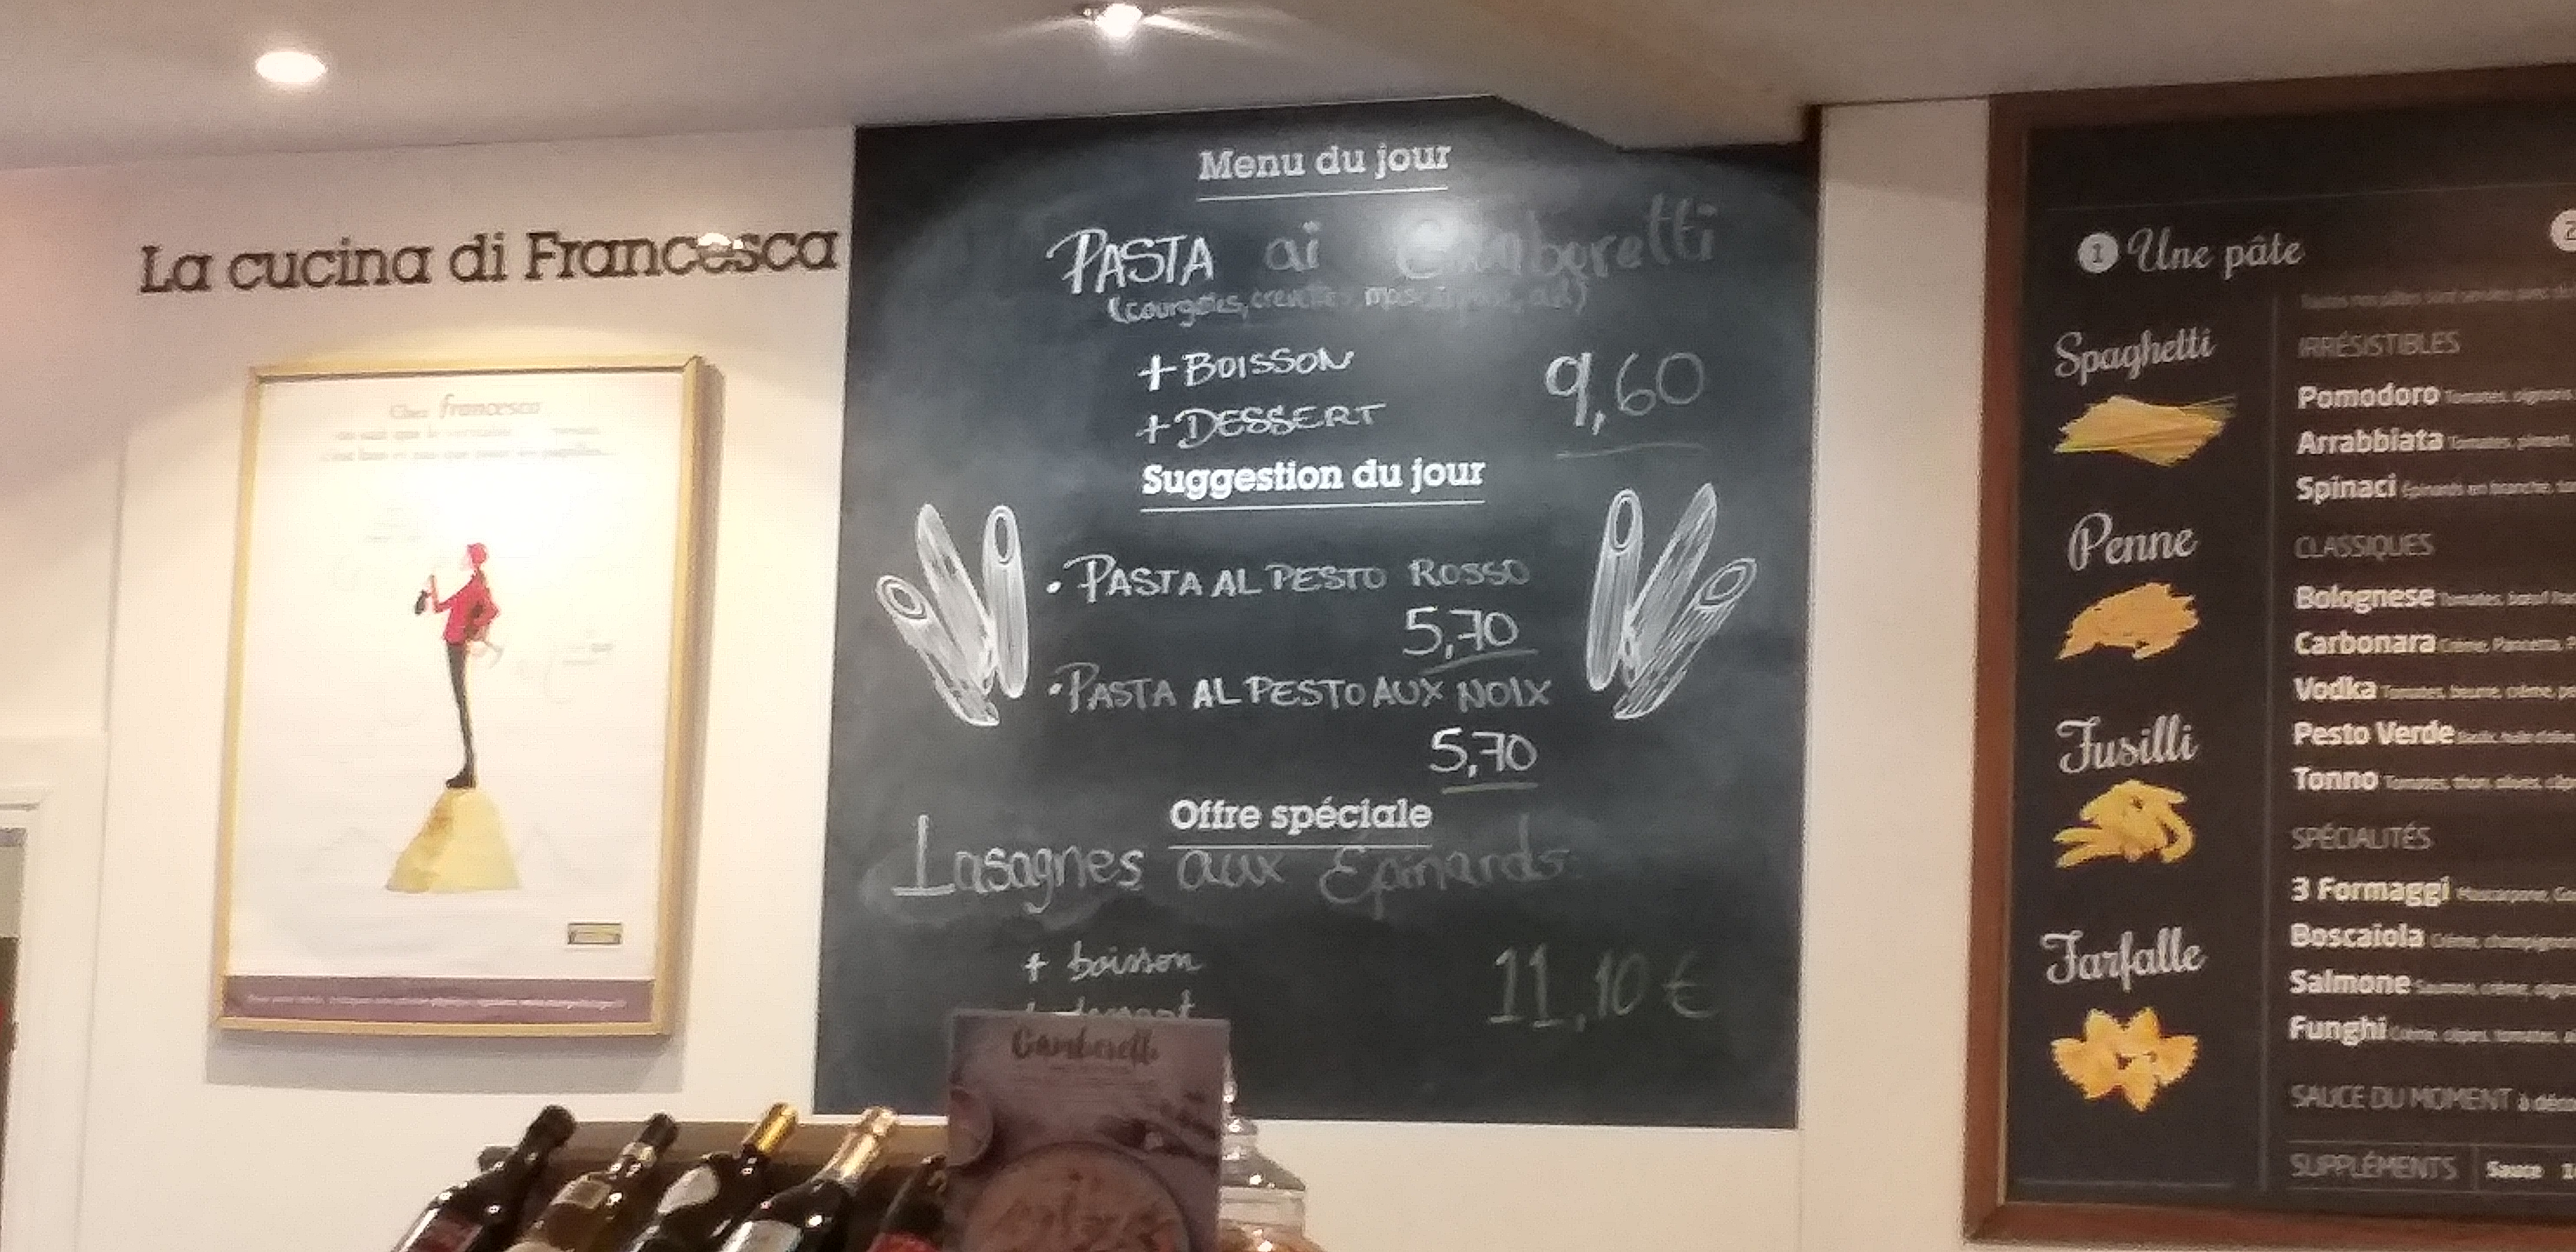 La cucina di Francesca
Chez francesca
Menu du jour
PASTA ai Gamberetti
(courgettes, crevettes, mascarpone, ail)
+ BOISSON
9,60
+ DESSERT
Suggestion du jour
• PASTA AL PESTO ROSSO
5,70
• PASTA AL PESTO AUX NOIX
5,70
Offre spéciale
Lasagnes aux Epinards
+ boisson
11,10 €
+ dessert
Gamberetti
1 Une pâte
2
Spaghetti
Penne
Fusilli
Farfalle
IRRÉSISTIBLES
Pomodoro Tomates, oignons
Arrabbiata Tomates, piment
Spinaci Épinards en branche,
CLASSIQUES
Bolognese Tomates, bœuf
Carbonara Crème, Pancetta,
Vodka Tomates, beurre, crème,
Pesto Verde Basilic, huile
Tonno Tomates, thon, olives,
SPÉCIALITÉS
3 Formaggi Mascarpone,
Boscaiola Crème,
Salmone Saumon, crème,
Funghi Crème, cèpes, tomates,
SAUCE DU MOMENT à
SUPPLÉMENTS Sauce